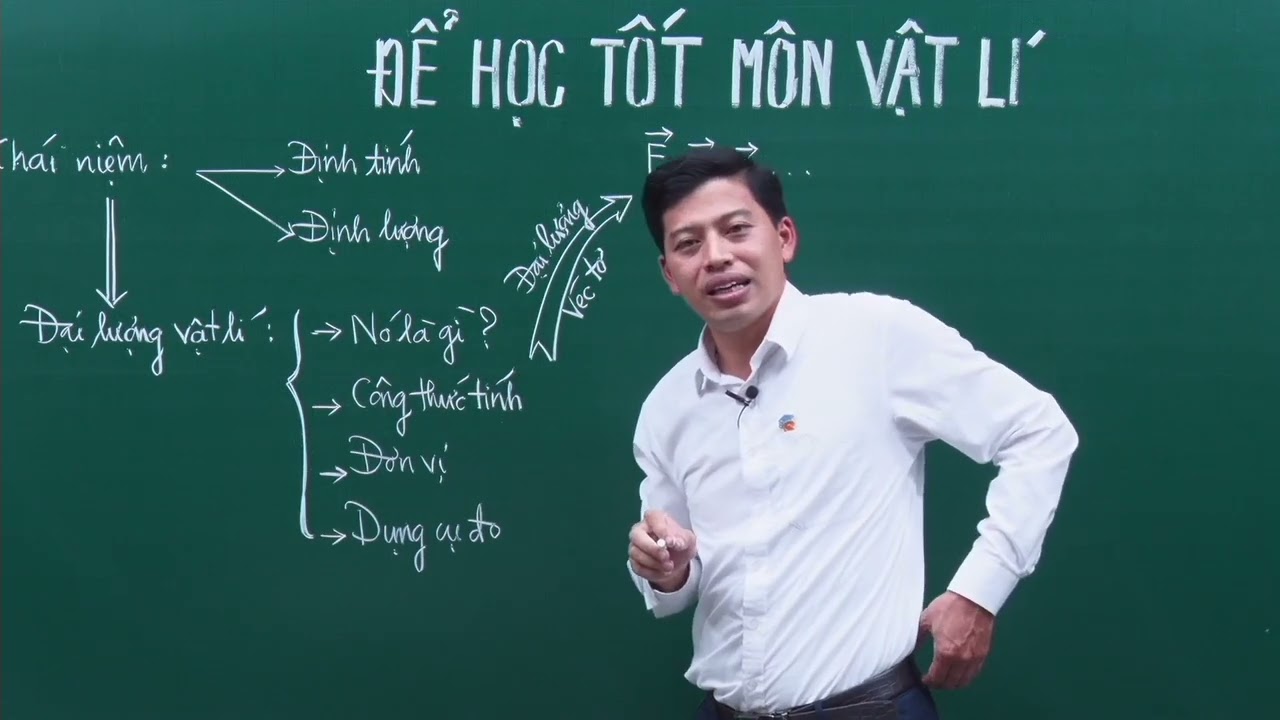 ĐỂ HỌC TỐT MÔN VẬT LÍ
hái niệm :
Định tính
Định lượng
Đại lượng vật lí :
Nó là gì ?
Công thức tính
Đơn vị
Dụng cụ đo
Đại lượng
Véc tơ
F ...